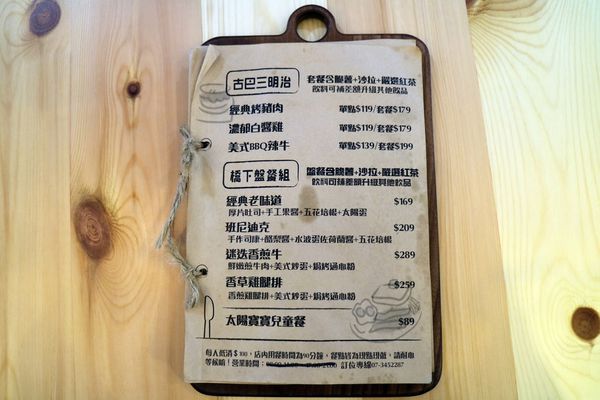 古巴三明治
套餐含脆薯+沙拉+嚴選紅茶
飲料可補差額升級其他飲品
經典烤豬肉 單點$119/套餐$179
濃郁白醬雞 單點$119/套餐$179
美式BBQ辣牛 單點$139/套餐$199
橋下盤餐組
盤餐含脆薯+沙拉+嚴選紅茶
飲料可補差額升級其他飲品
經典老味道 $169
厚片吐司+手工果醬+五花培根+太陽蛋
班尼迪克 $209
手作司康+酪梨醬+水波蛋佐荷蘭醬+五花培根
迷迭香煎牛 $289
鮮嫩煎牛肉+美式炒蛋+焗烤通心粉
香草雞腿排 $259
香煎雞腿排+美式炒蛋+焗烤通心粉
太陽寶寶兒童餐 $89
每人低消$100,店內用餐時間為90分鐘,餐點皆為現點現做,請耐心
等候喔!營業時間: 訂位專線07-3452287